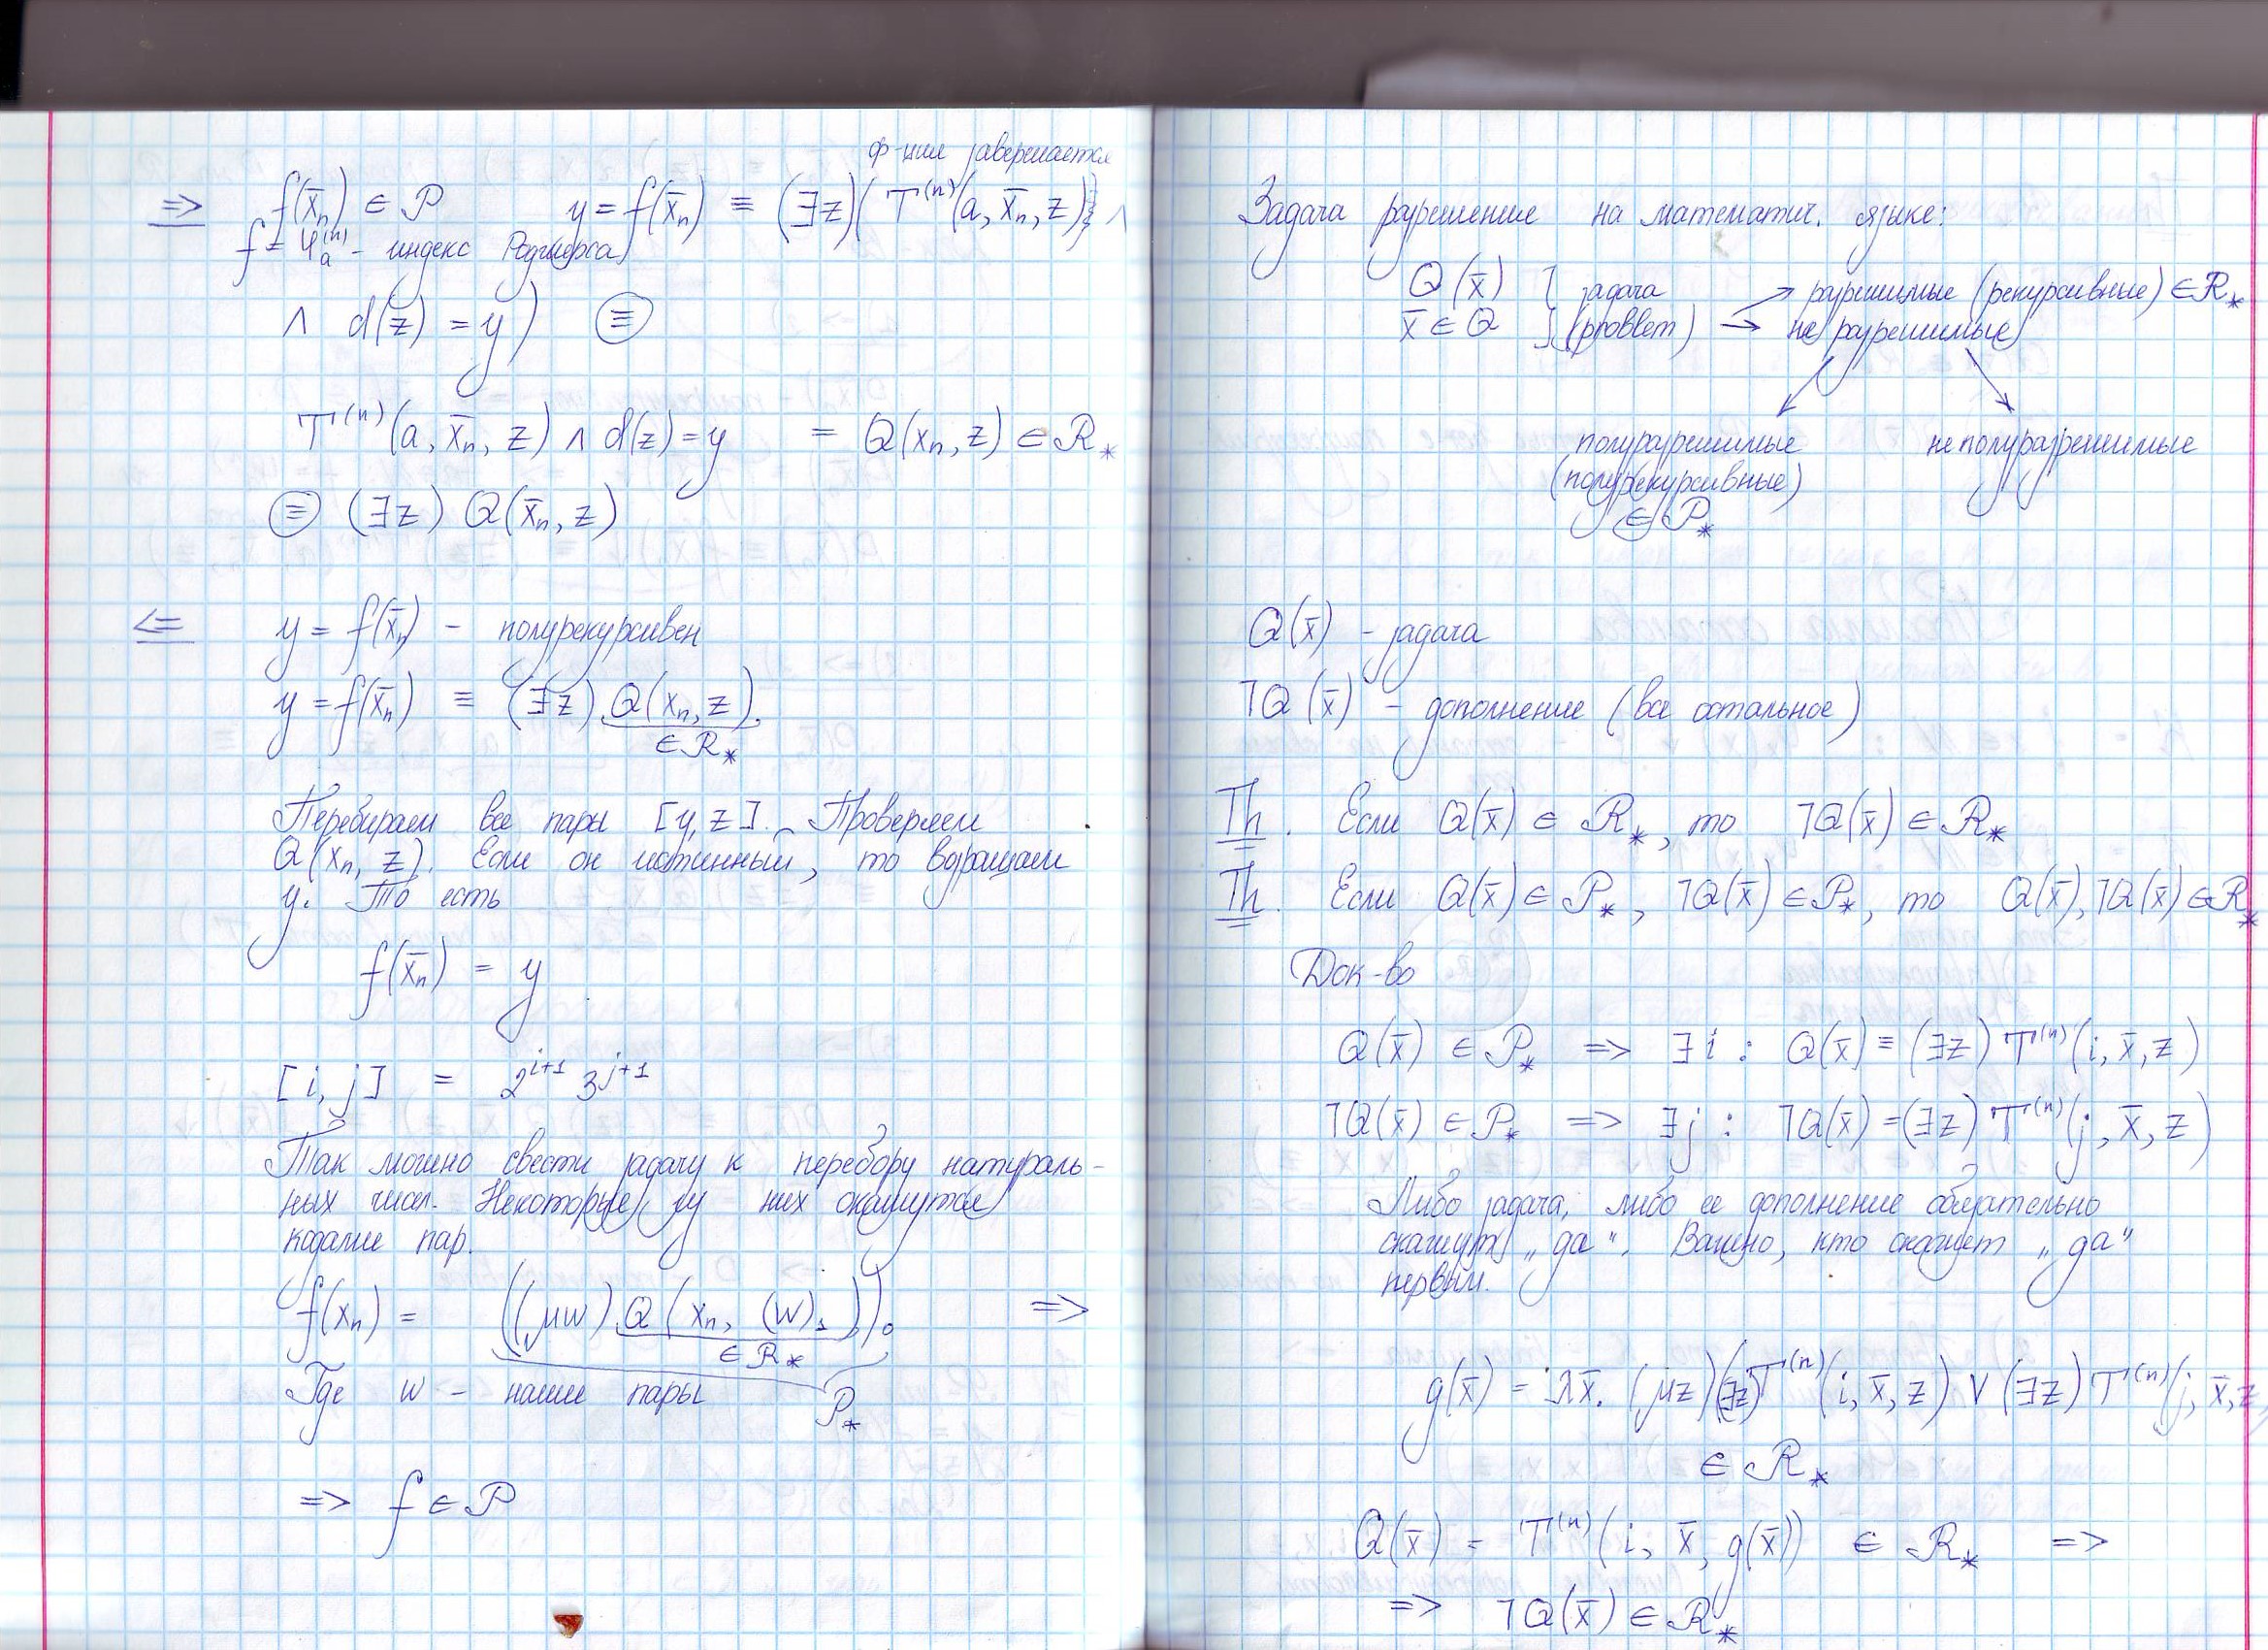 ф-ция завершается
=> f(x̄ₙ) ∈ P y = f(x̄ₙ) ≡ (∃z)(T⁽ⁿ⁾(a, x̄ₙ, z) ∧
f = φₐ⁽ⁿ⁾ - индекс Роджерса
∧ d(z) = y) ≡
T⁽ⁿ⁾(a, x̄ₙ, z) ∧ d(z) = y = Q(xₙ, z) ∈ R*
≡ (∃z) Q(x̄ₙ, z)
<= y = f(x̄ₙ) - полурекурсивен
y = f(x̄ₙ) ≡ (∃z) Q(xₙ, z)
∈ R*
Перебираем все пары [y, z]. Проверяем
Q(xₙ, z). Если он истинный, то возращаем
y. То есть
f(x̄ₙ) = y
[i, j] = 2^{i+1} 3^{j+1}
Так можно свести задачу к перебору натураль-
ных чисел. Некоторые из них окажутся
кодами пар.
f(xₙ) = ((μw) Q(xₙ, (w)₁))₀ =>
∈ R*
Где w - наши пары P*
=> f ∈ P
Задача разрешение на математич. языке:
Q(x̄) } задача → разрешимые (рекурсивные) ∈ R*
x̄ ∈ Q } (problem) → не разрешимые
полуразрешимые не полуразрешимые
(полурекурсивные)
∈ P*
Q(x̄) - задача
⌉Q(x̄) - дополнение (все остальное)
Th. Если Q(x̄) ∈ R*, то ⌉Q(x̄) ∈ R*
Th. Если Q(x̄) ∈ P*, ⌉Q(x̄) ∈ P*, то Q(x̄), ⌉Q(x̄) ∈ R*
Док-во
Q(x̄) ∈ P* => ∃i : Q(x̄) ≡ (∃z) T⁽ⁿ⁾(i, x̄, z)
⌉Q(x̄) ∈ P* => ∃j : ⌉Q(x̄) = (∃z) T⁽ⁿ⁾(j, x̄, z)
Либо задача, либо ее дополнение обязательно
скажут „да“. Важно, кто скажет „да“
первым.
g(x̄) = λx̄. (μz)(∃z)T⁽ⁿ⁾(i, x̄, z) ∨ (∃z) T⁽ⁿ⁾(j, x̄, z
∈ R*
Q(x̄) = T⁽ⁿ⁾(i, x̄, g(x̄)) ∈ R* =>
=> ⌉Q(x̄) ∈ R*